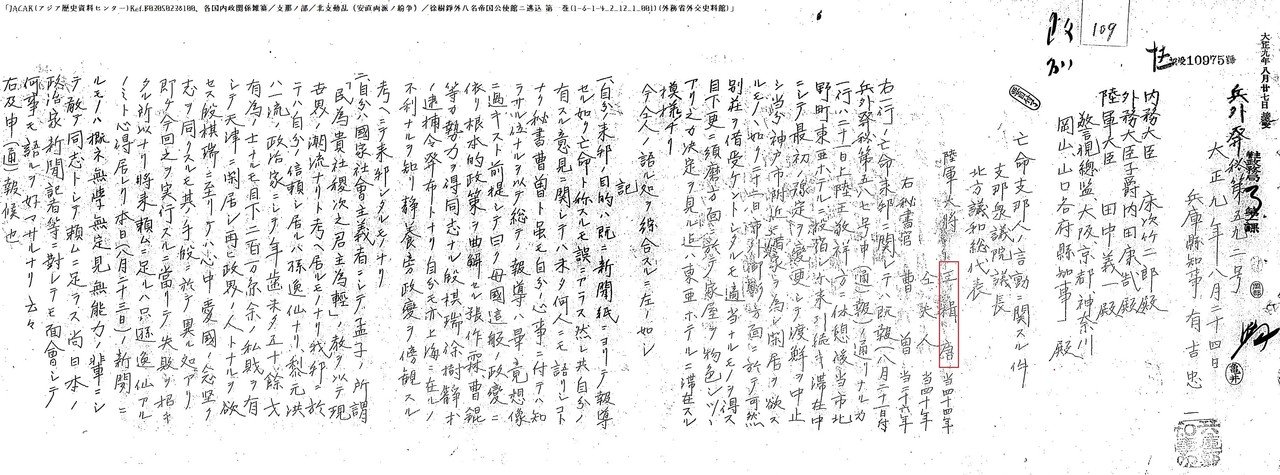 「JACAR(アジア歴史資料センター)Ref.B03050236100、各国内政関係雑纂/支那ノ部/北支動乱(安直両派ノ紛争)/徐樹錚外八名帝国公使館ニ逃込 第一巻(1-6-1-4_2_12_1_001)(外務省外交史料館)」
109
大正九年八月廿七日接受
10975
兵外発秘第五九二号
大正九年八月二十四日
兵庫縣知事 有吉忠一
内務大臣 床次竹二郎殿
外務大臣子爵内田康哉殿
陸軍大臣 田中義一殿
警視總監、大阪、京都、神奈川
岡山、山口各府縣知事殿
亡命支那人ノ言動ニ関スル件
支那衆議院議長
北方議和総代表
陸軍大將 王揖唐 当四十四年
仝夫人 当四十年
右秘書官 曹 当三十六年
右一行ノ亡命来邦ニ関シテハ既報(八月二十一日付
兵外発秘第五八七号申(通)報)ノ通リナルカ
一行ハ二十一日上陸 休憩後当市北
野町東亜ホテルニ投宿シ尓来引続キ滞在中
ニシテ最初ノ予定
シ当分神戸市附近ニ 閑居ヲ欲ス
ルモノノ如ク 於テ可然
別荘ヲ借受ケントシタルモ適当ナルモノヲ得ス
目下更ニ須磨方面ニ於テ家屋ヲ物色シツツ
アリ之カ決定ヲ見ル迄ハ東亜ホテルニ滞在スル
模様ナリ
今仝人ノ語ル処ヲ綜合スルニ左ノ如シ
記
一、自分ノ来邦ノ目的ハ既ニ新聞紙ニヨリテ報導
セル如ク亡命ト称スルモ誤ニアラス然レ共自分ノ
有スル意見ニ関シテハ未タ何人ニモ語リシコト
ナク秘書曹 ト雖モ自分ノ心事ニ付テハ知
ラサル位ナルヲ以テ総テノ報導ハ畢竟想像
ニ過キス只前提シテ曰ク毋國這般ノ政変ニ
依リ根本的政策ヲ曲解セル張作霖曹錕
等カ勢力ヲ得同志ナル段棋瑞、徐樹錚等
ノ逮捕令発布トナリ自分モ亦上海ニ在ルノ
不利ナルヲ知リ静養旁政変ヲ傍観スル
考ヘニテ来邦シタルモノナリ
二、自分ハ國家社会主義者ニシテ孟子ノ所謂
「民ヲ為貴社稷次之君主為軽」ノ教ヲ以テ現
世界ノ潮流ナリト考ヘ居ルモノナリ我邦ニ於
テハ自分ノ信頼シ居ルハ孫逸仙ナリ黎元洪
ハ一流ノ政治家ニシテ年歯未タ五十餘才
有為ノ士ナルモ目下二百萬円余ノ私財ヲ有
シテ天津ニ閑居シ再ヒ政界ノ人トナルヲ欲
セス段棋瑞ニ至リテハ心中愛國ノ念堅ク
志ヲ同フスルモ其ノ手段ニ於テ異ル処アリ
即チ今回之ヲ実行スルニ當リテ失敗ヲ招キ
タル所以ナリ将来頼ムニ足ルハ只孫逸仙アル
ノミト心得居レリ本日(八月二十三日)ノ新聞ニ
ルモノハ概ネ無學無定見無能力ノ輩ニシ
テ敢テ同志トシテ頼ムニ足ラス尚日本ノ
政治家新聞記者等ニ対シテモ面會シテ
何事モ語ルヲ好マサルナリ云々
右及申(通)報候也